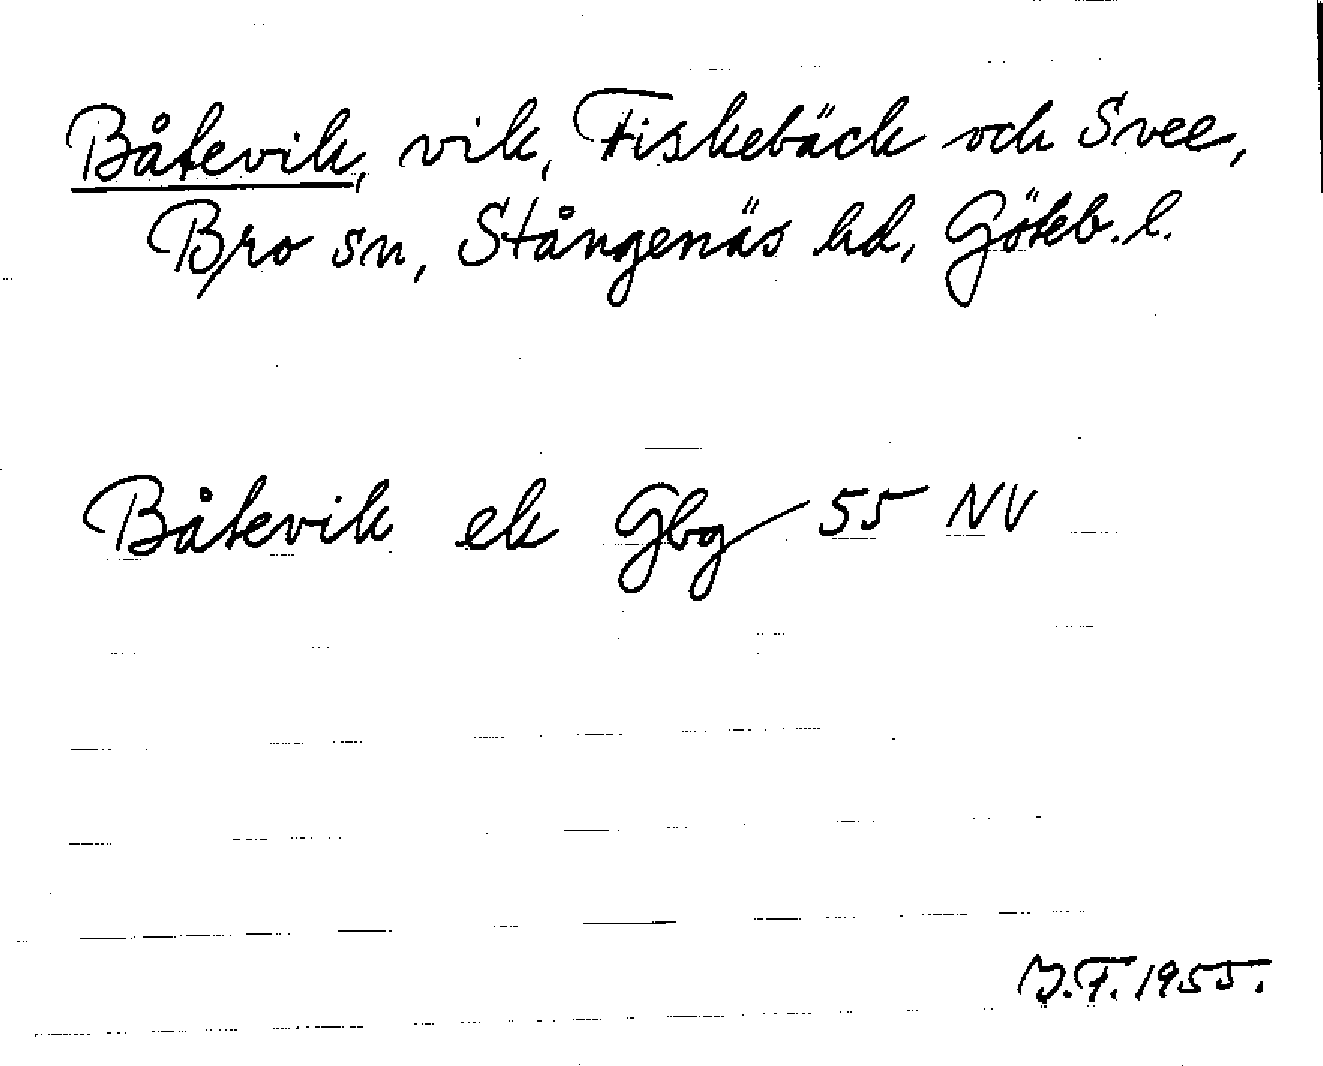 Båtevik, vik, Fiskebäck och Svee,
Bro sn, Stångenäs hd, Göteb. l.
Båtevik ek Gbg 55 NV
J.F. 1955.